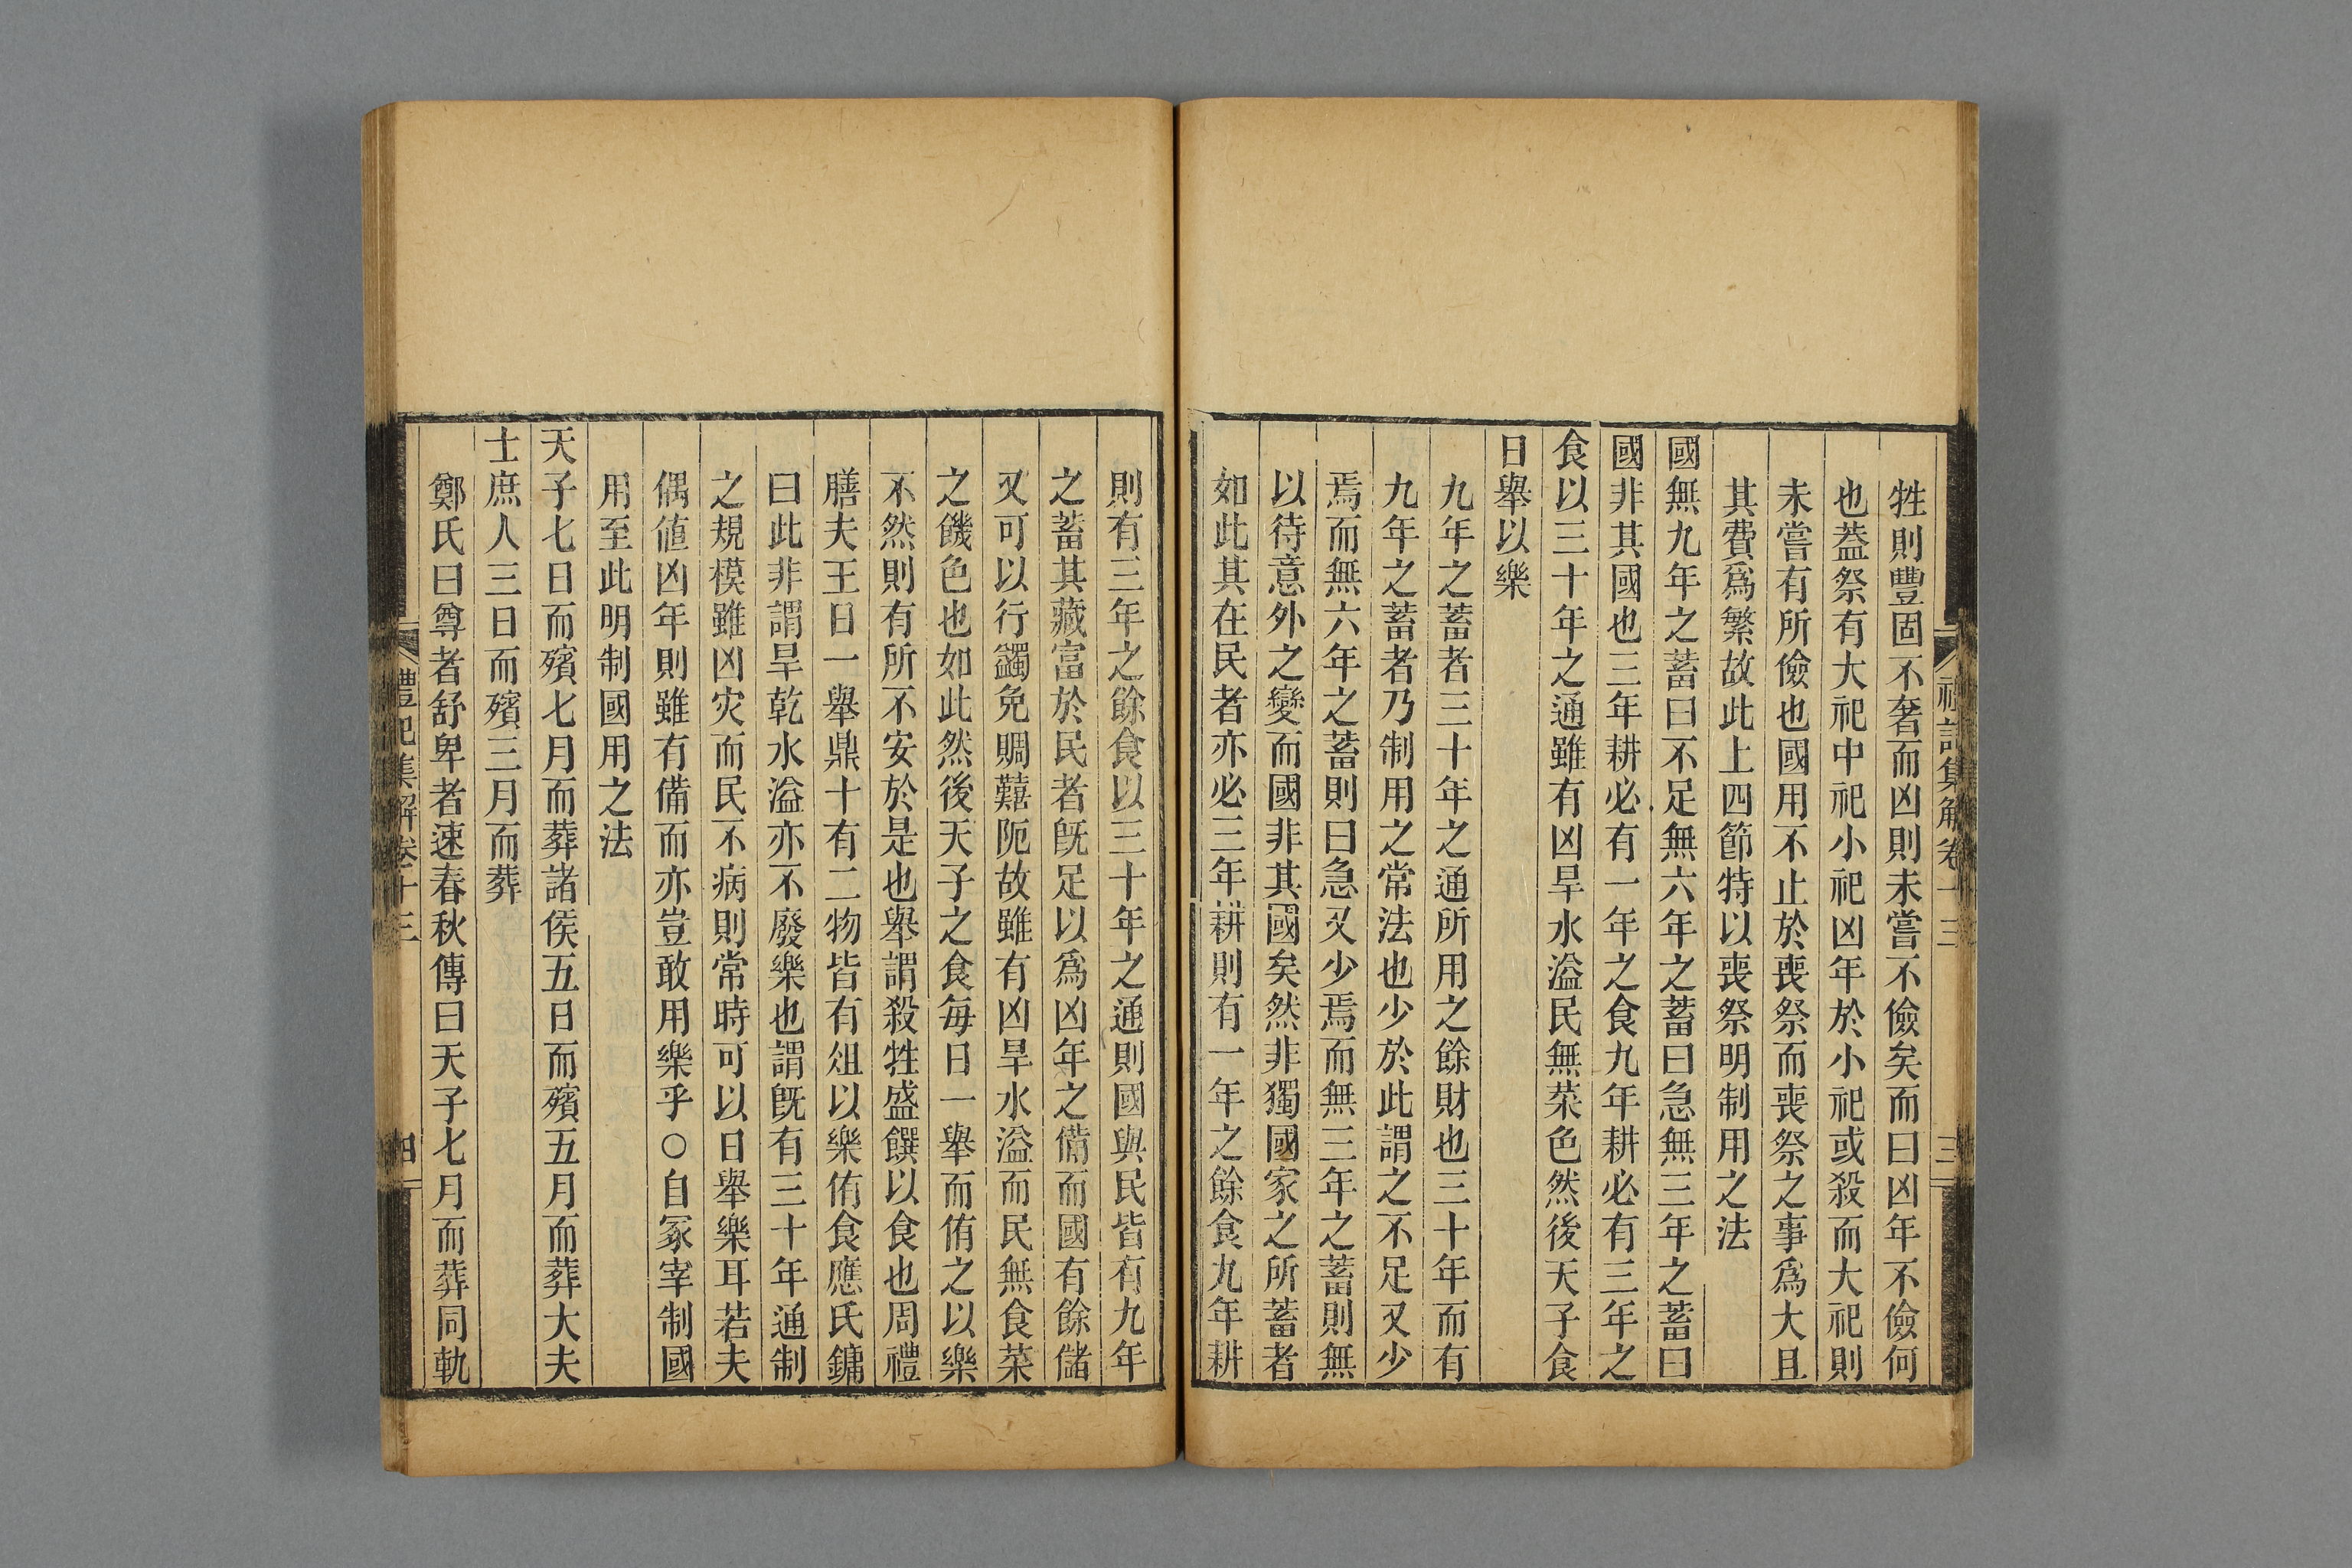 牲則豐固不奢而凶則未嘗不儉矣而曰凶年不儉何
也葢祭有大祀中祀小祀凶年於小祀或殺而大祀則
未嘗有所儉也國用不止於喪祭而喪祭之事爲大且
其費爲繁故此上四節特以喪祭明制用之法
國無九年之蓄曰不足無六年之蓄曰急無三年之蓄曰
國非其國也三年耕必有一年之食九年耕必有三年之
食以三十年之通雖有凶旱水溢民無菜色然後天子食
日舉以樂
九年之蓄者三十年之通所用之餘財也三十年而有
九年之蓄者乃制用之常法也少於此謂之不足又少
焉而無六年之蓄則曰急又少焉而無三年之蓄則無
以待意外之變而國非其國矣然非獨國家之所蓄者
如此其在民者亦必三年耕則有一年之餘食九年耕
禮記集解卷十三
三
則有三年之餘食以三十年之通則國與民皆有九年
之蓄其藏富於民者旣足以爲凶年之備而國有餘儲
又可以行蠲免賙囏阨故雖有凶旱水溢而民無食菜
之饑色也如此然後天子之食每日一舉而侑之以樂
不然則有所不安於是也舉謂殺牲盛饌以食也周禮
膳夫王日一舉鼎十有二物皆有俎以樂侑食應氏鏞
曰此非謂旱乾水溢亦不廢樂也謂旣有三十年通制
之規模雖凶灾而民不病則常時可以日舉樂耳若夫
偶値凶年則雖有備而亦豈敢用樂乎○自冢宰制國
用至此明制國用之法
天子七日而殯七月而葬諸侯五日而殯五月而葬大夫
士庶人三日而殯三月而葬
鄭氏曰尊者舒卑者速春秋傳曰天子七月而葬同軌
禮記集解卷十三
四